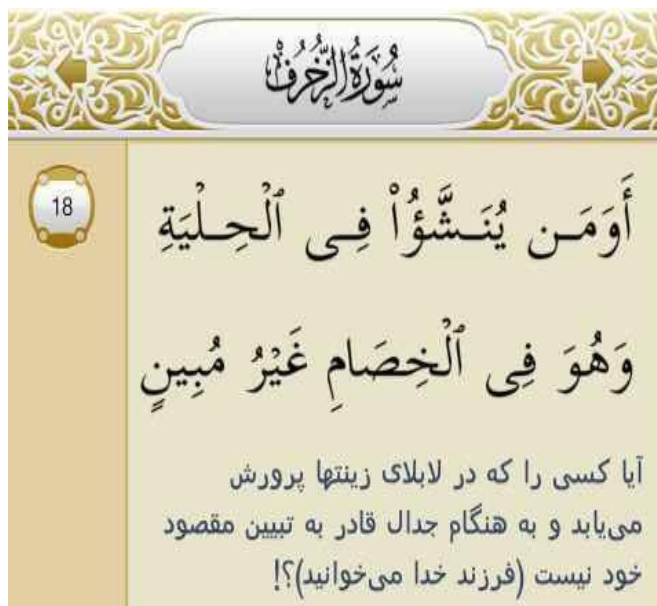 سُورَةُ الزُّخْرُفِ
18
أَوَمَـن يُنَـشَّؤُا۟ فِـى ٱلْحِـلْيَةِ
وَهُوَ فِى ٱلْخِصَامِ غَيْرُ مُبِينٍ
آیا کسی را که در لابلای زینتها پرورش
می‌یابد و به هنگام جدال قادر به تبیین مقصود
خود نیست (فرزند خدا می‌خوانید)؟!